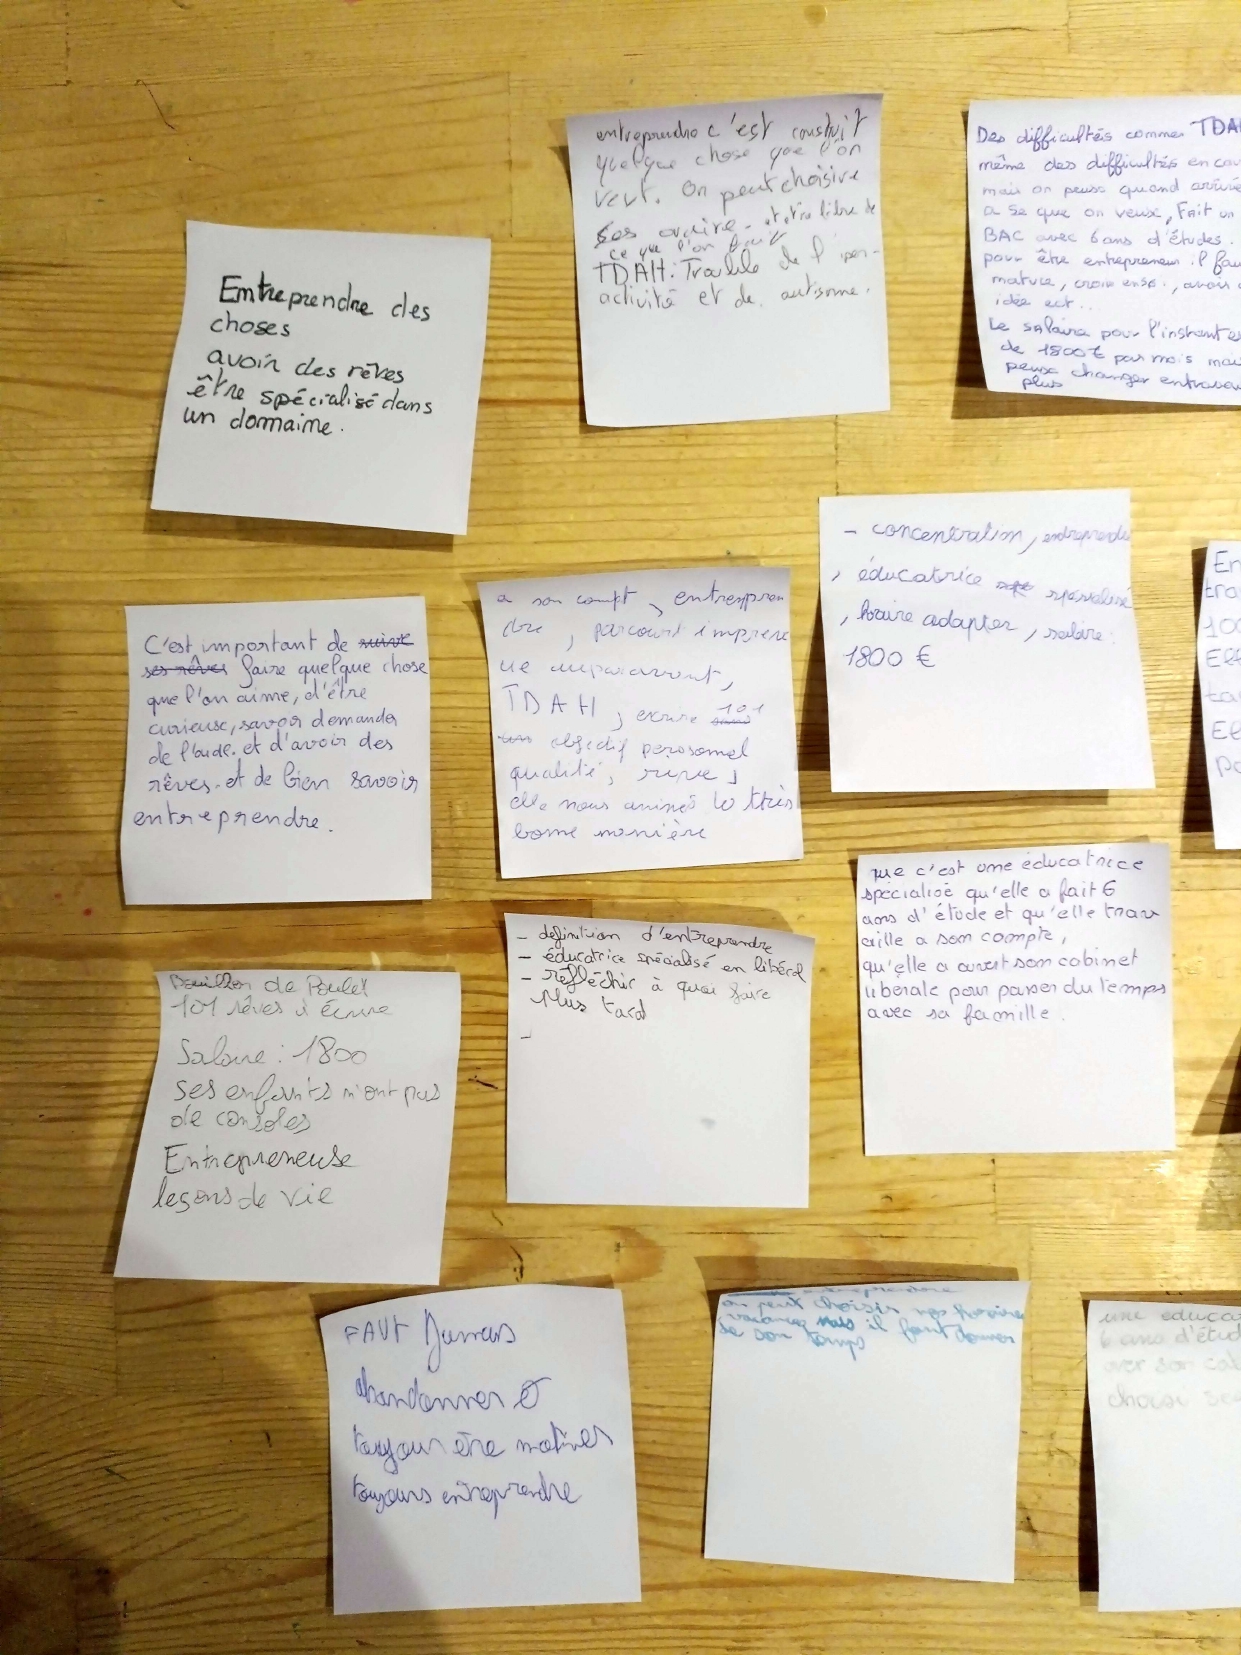 entreprendre c'est construit
quelque chose que l'on
veut. On peut choisire
ses oraire - et etre libre de
ce que l'on fait
TDAH: Trouble de l'iper-
activité et de autisme.
Des difficultés comme TDA
même des difficultés en cou
mais on peuse quand arrivé
a se que on veux, Fait un
BAC avec 6 ans d'études.
pour être entrepreneur il fau
mature, croire ensoi, avoir
idée ect..
Le salaire pour l'instant es
de 1800€ par mois mai
peuse changer entravai
plus
Entreprendre des
choses
avoir des rêves
être spécialisé dans
un domaine.
- concentration, entreprendre
, éducatrice spécialisé
, horaire adapter, salaire:
1800 €
En
tra
100
Eff
ta
Ell
po
C'est important de suivre
ses rêves faire quelque chose
que l'on aime, d'être
curieuse, savoir demander
de l'aide. et d'avoir des
rêves. et de bien savoir
entreprendre.
a son compt, entrespren
dre, parcourt imprene
ue auparavant,
TDAH, ecrire 101
objectif perosomel
qualité, rêve,
elle nous animés
bonne manière
que c'est une éducatrice
spécialisé qu'elle a fait 6
ans d'étude et qu'elle trav
aille a son compte,
qu'elle a ouvert son cabinet
libérale pour passer du temps
avec sa famille.
- définition d'entreprendre
- éducatrice spécialisé en libéral
- réfléchir à quoi faire
plus tard
-
Bouillon de Poulet
101 rêves à écrire
Salaire : 1800
Ses enfants n'ont pas
de consoles
Entrepreneuse
leçons de vie
FAUt Jamais
abandonner et
toujour être motiver
toujours entreprendre
entreprendre
on peut choisir nos horaires
vacances mais il faut donner
de son temps
une educa
6 ans d'étud
aver son cab
choisi ses